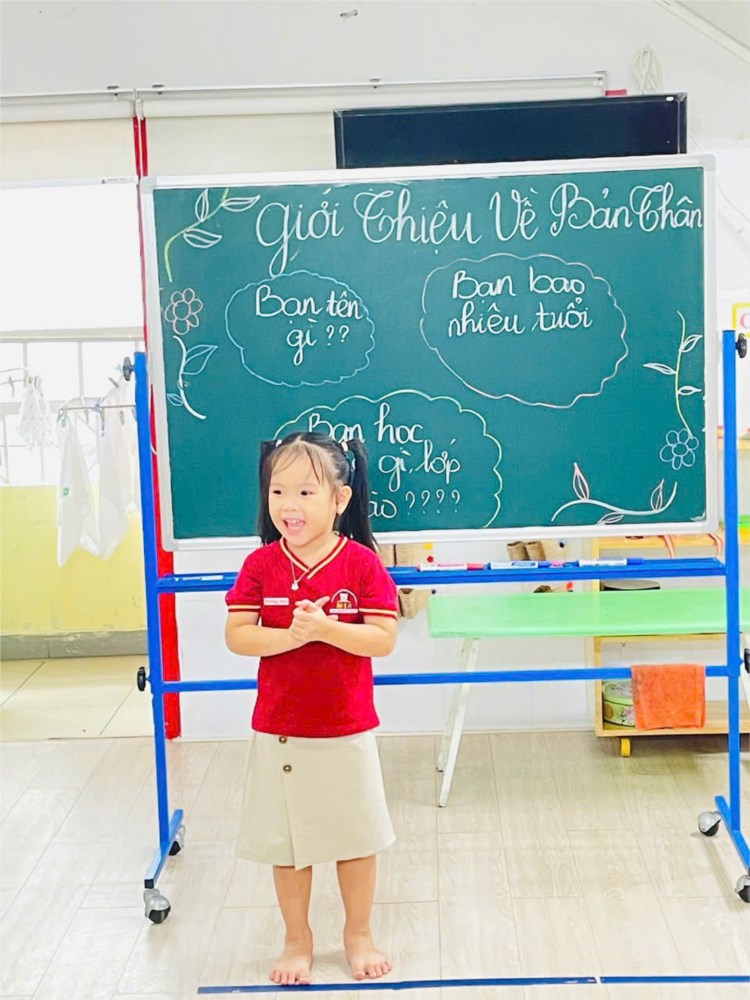 Giới Thiệu Về Bản Thân
Bạn tên
gì ??
Bạn bao
nhiêu tuổi
Bạn học
gì, lớp
????